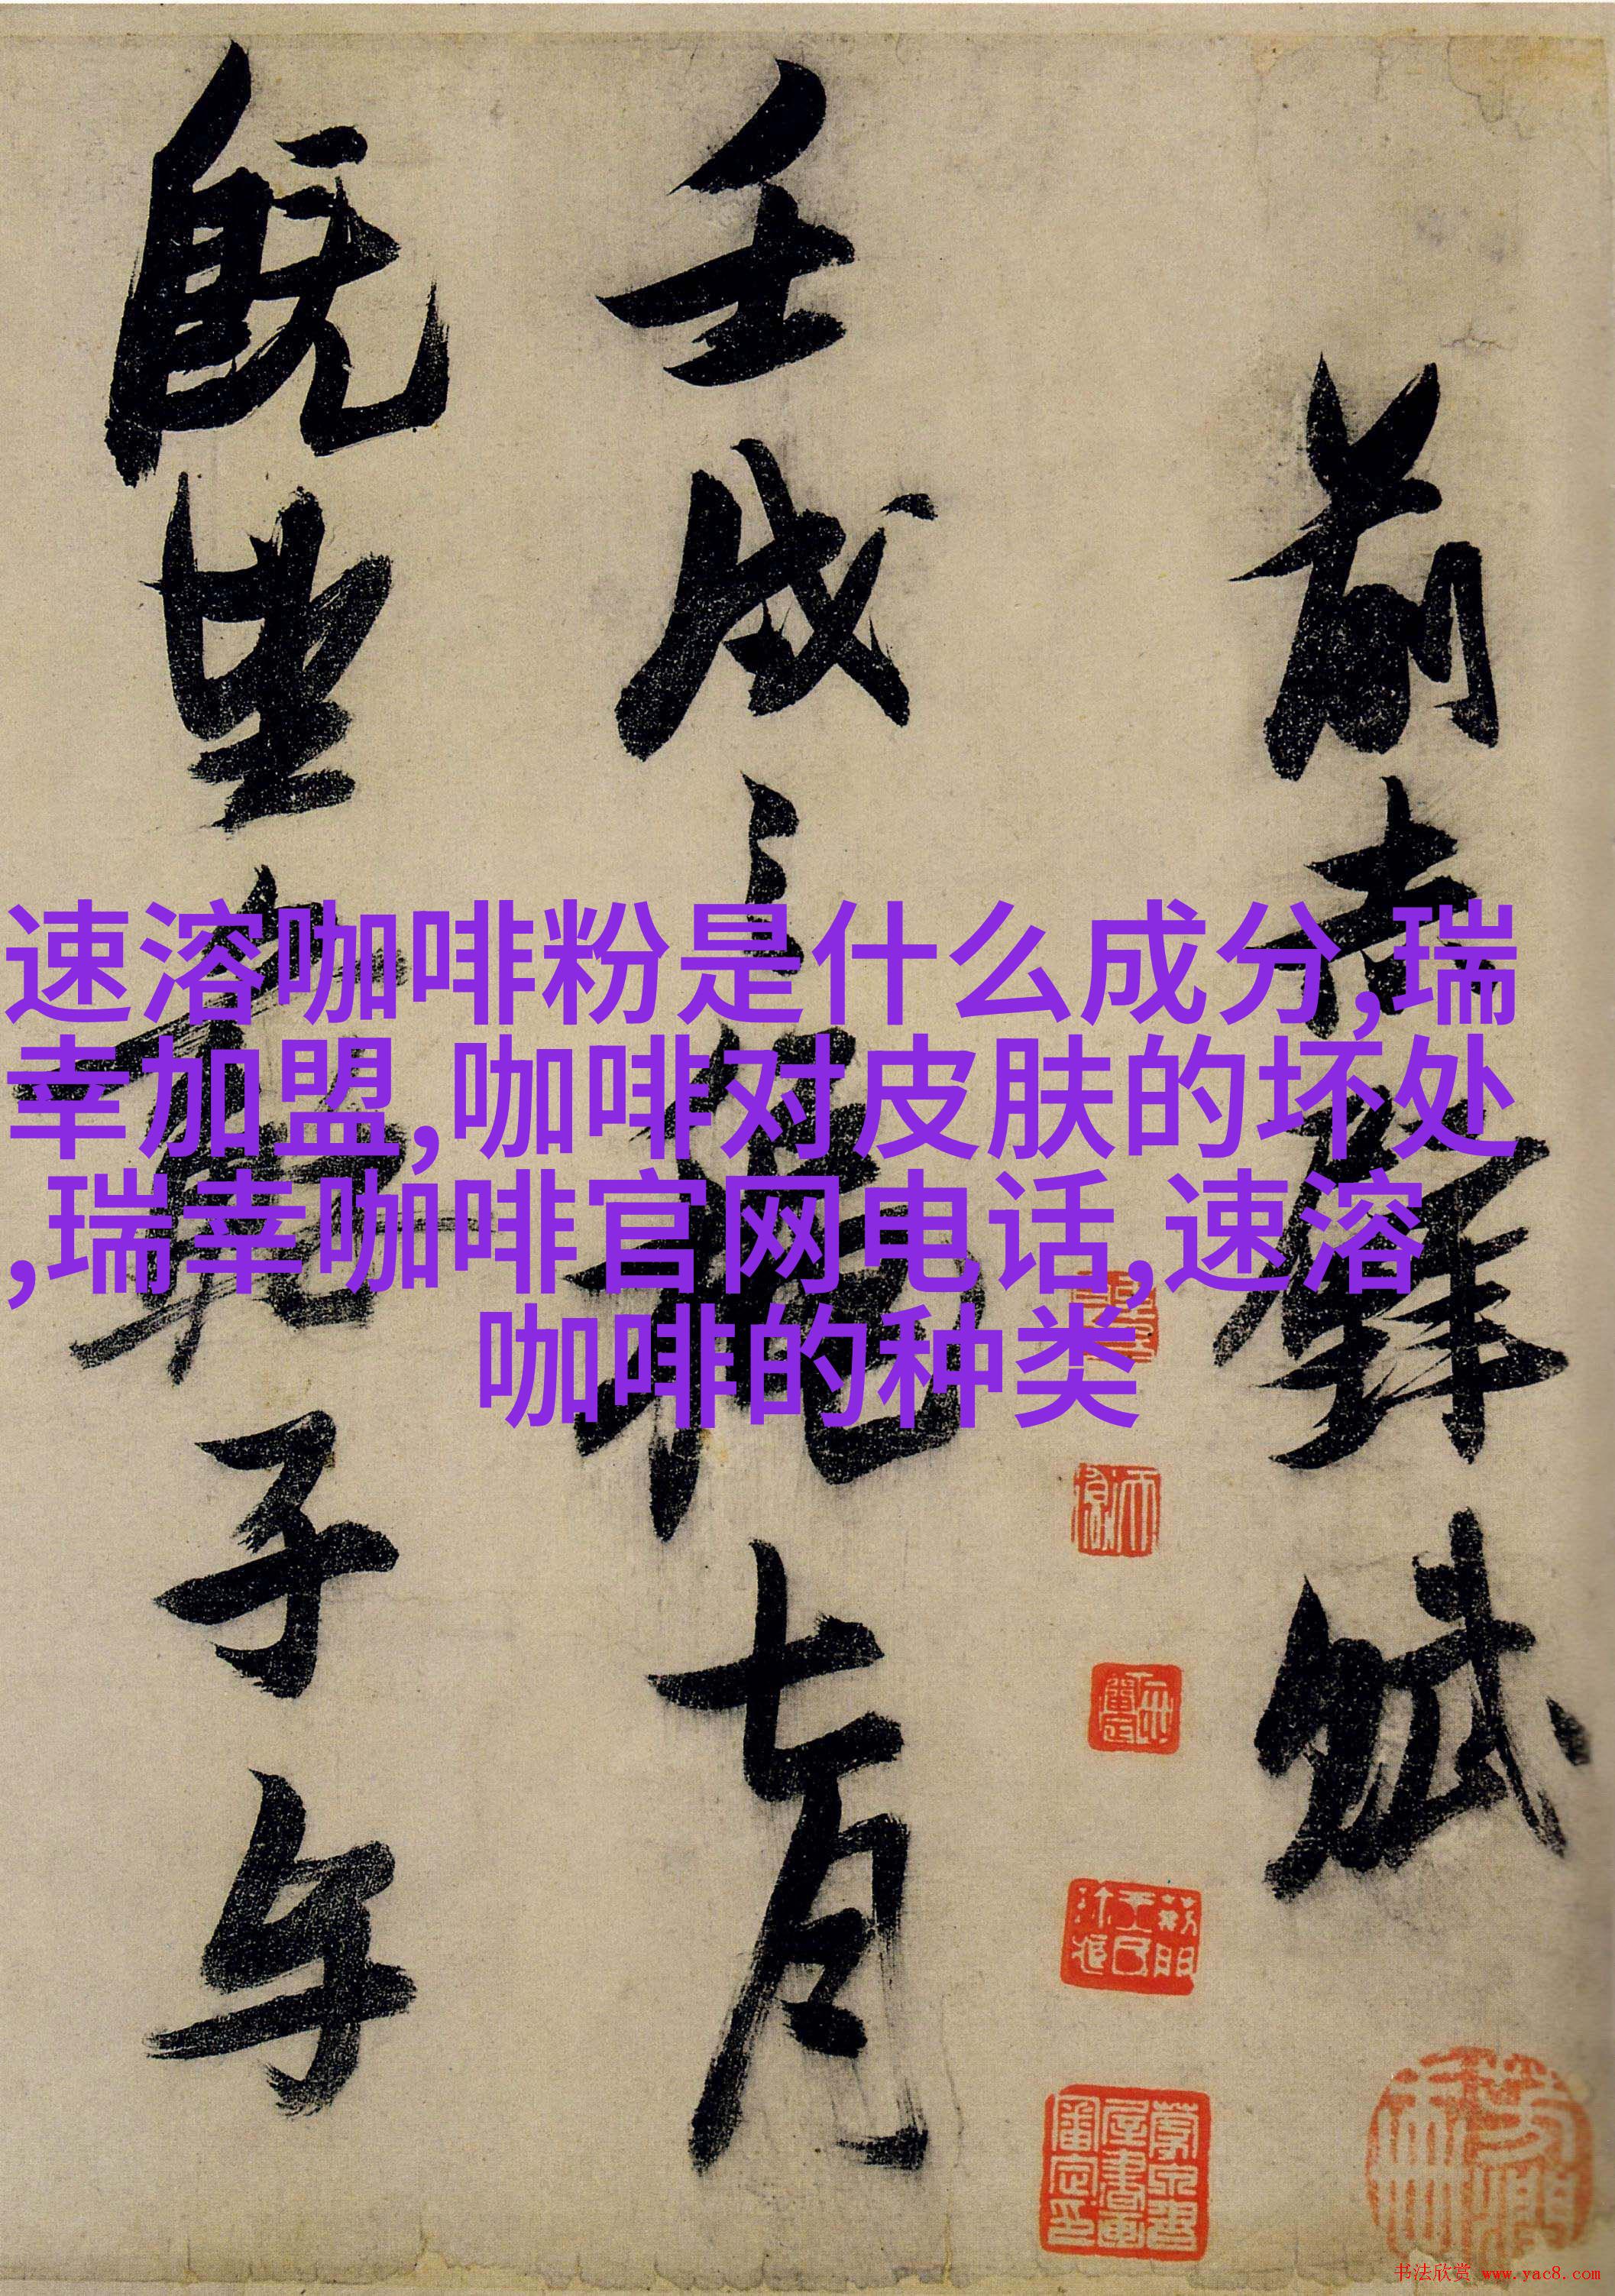 前赤壁賦
壬戌之秋七月
既望子与
速溶咖啡粉是什么成分,瑞
幸加盟,咖啡对皮肤的坏处
,瑞幸咖啡官网电话,速溶
咖啡的种类
书法欣赏 www.yac8.com